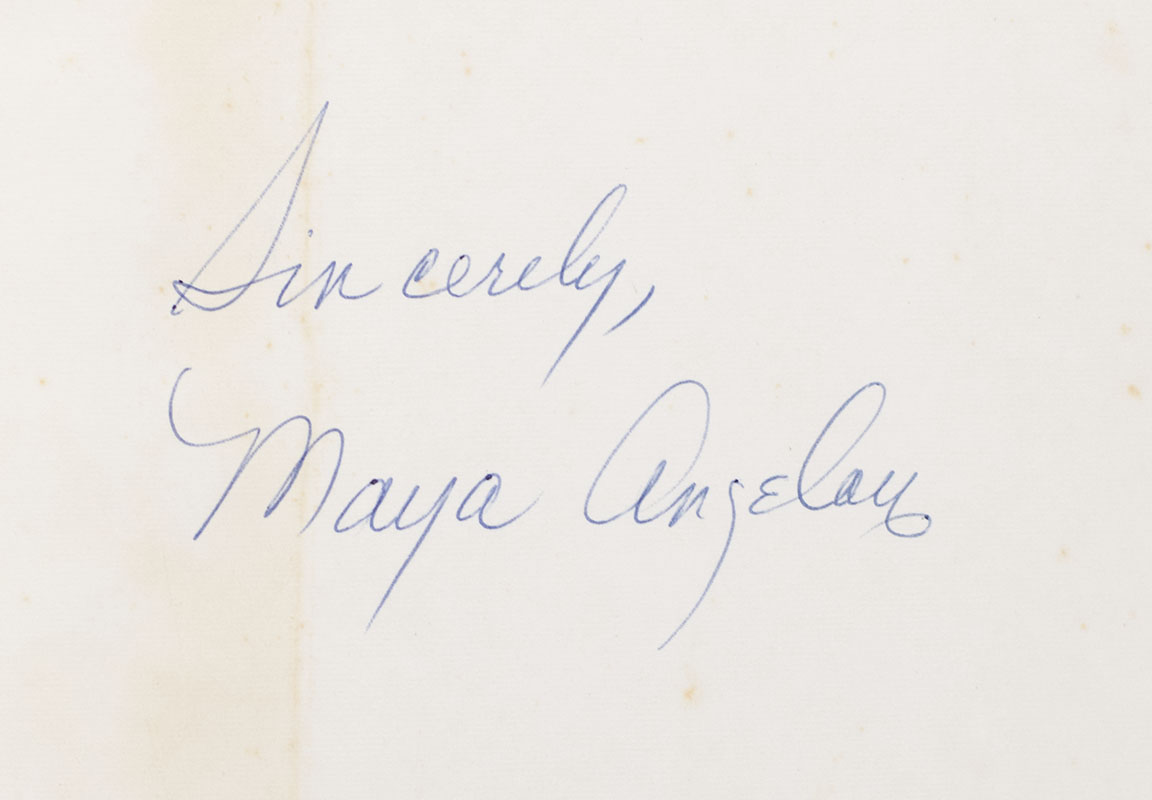 Sincerely,
Maya Angelou